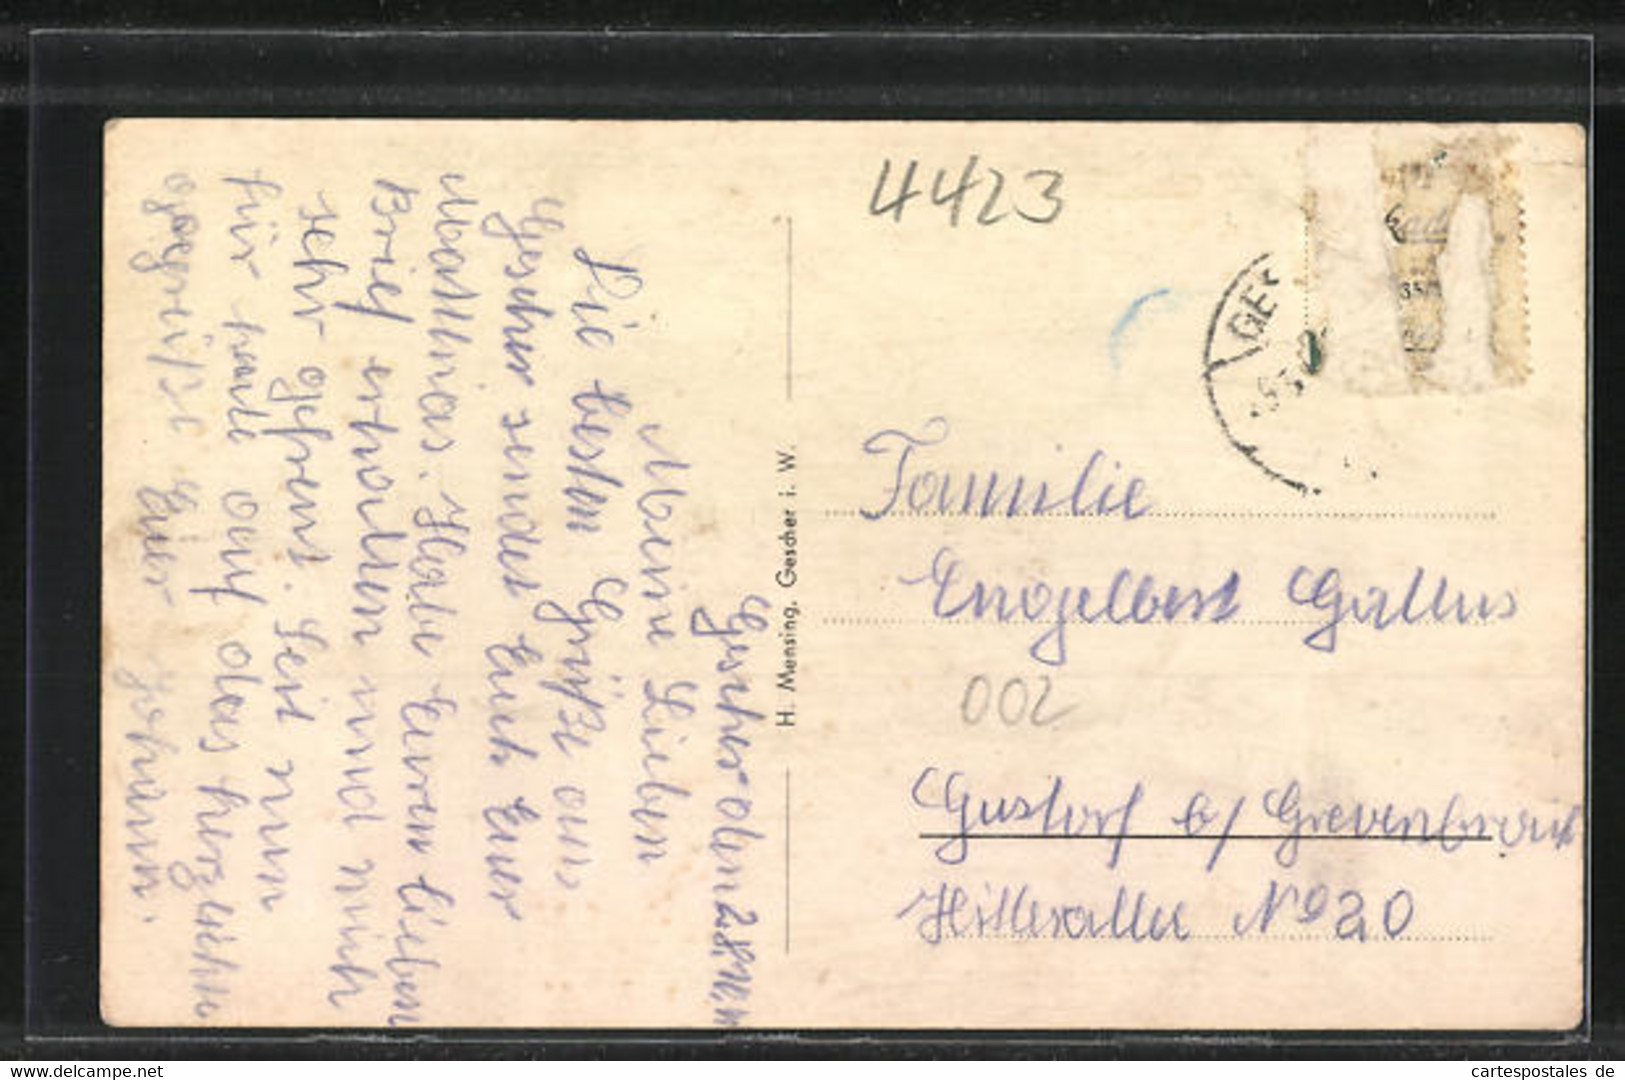 Gescher den
Meine Lieben
Die besten Grüße aus
Gescher sendet Euch Euer
Mathias. Habe Euren lieben
Brief erhalten und mich
sehr gefreut. Seit nun
für heute auf das herzlichste
gegrüßt Euer Johann.
H. Mensing, Gescher i. W.
4423
GES
Familie
Engelbert Gallus
002
Gustorf b/ Grevenbroich
Hitlerallee No 20
Delcampe.net
cartespostales de